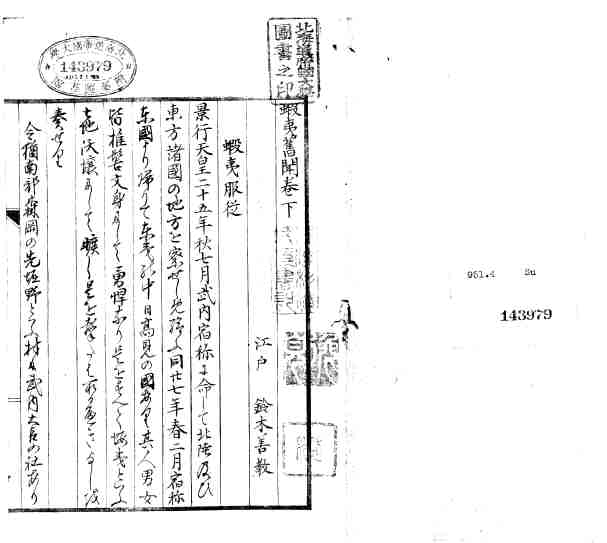 143979
北海道帝國大學
圖書之印
蝦夷舊聞卷下
江戸 鈴木善教
蝦夷服從
景行天皇二十五年秋七月武内宿祢に命して北陸及ひ
東方諸國の地方を察せしめ給ふ同廿七年春二月宿祢
東國より帰りて東夷の中日高見の國あり其人男女
皆椎髻文身して勇悍なり是をすへて蝦夷といふ
土地沃壌にして曠し是を撃
奏せり
今猶南部森岡の先 野といふ村に武内大臣の社あり
951.4 Su
143979